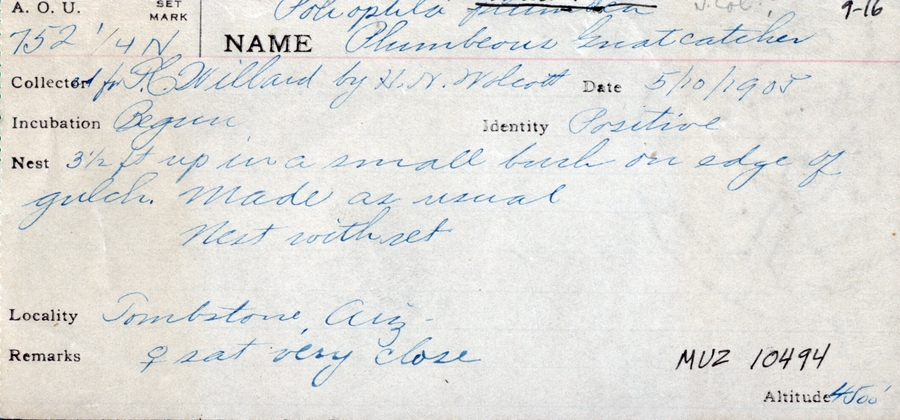 A. O. U. SET MARK Polioptila plumbea 9-16
752 1/4 N NAME Plumbeous Gnatcatcher
Collector F.C. Willard by H. N. Wolcott Date 5/10/1905
Incubation Begun Identity Positive
Nest 3½ ft up in a small bush on edge of
gulch. Made as usual
Nest with set
Locality Tombstone, Ariz-
Remarks ♀ sat very close
MVZ 10494
Altitude 4500'